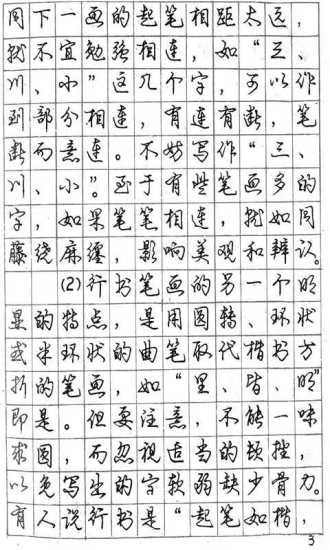 同下一画的起笔相距太远，
就不宜勉强相连，如“三、
川、小”这几个字，可以作
到部分相连，有连有断，笔
断而意连。不妨写作“三、
川、小”。至于有些笔画多的
字，如果笔笔相连，就如同
藤绕麻缠，影响美观和辩认。
(2)行书笔画的另一个明
显的特点，是用圆转、环状
或半环状的曲笔取代楷书方
折的笔画，如“里、皆、明”
即是。但要注意，不能一味
求圆，而忽视适当的顿挫，
以免写出的字软弱缺少骨力。
有人说行书是“起笔如楷，
3